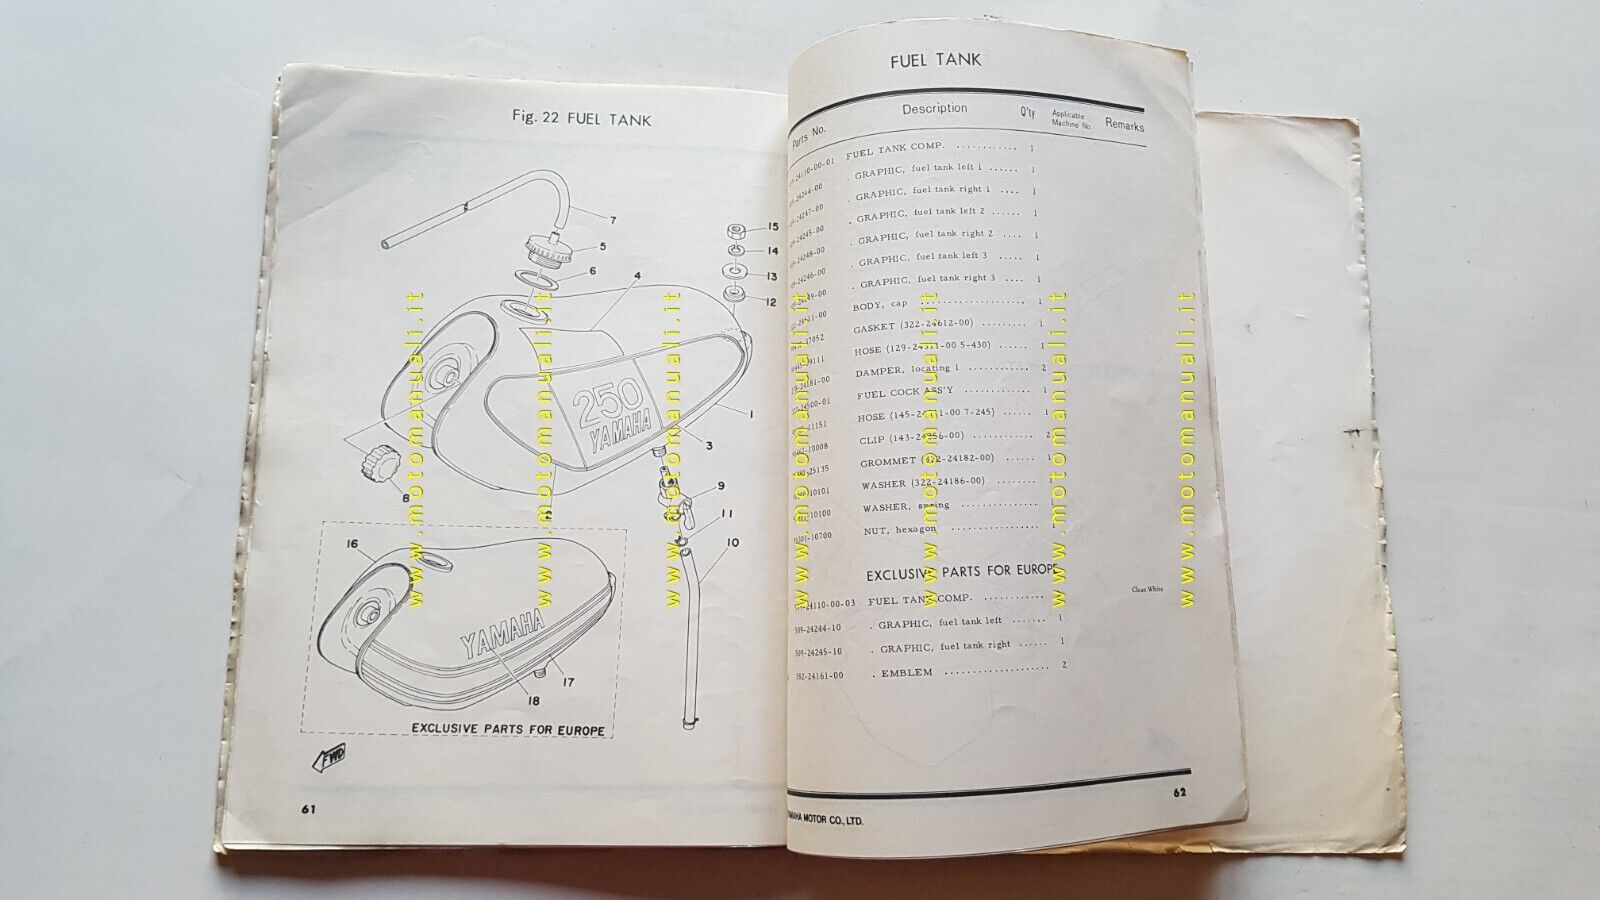 Fig. 22 FUEL TANK
7
5
6
4
15
14
13
12
250
YAMAHA
1
3
8
2
9
11
10
16
YAMAHA
17
18
EXCLUSIVE PARTS FOR EUROPE
FWD
61
FUEL TANK
Parts No. Description Q'ty Applicable Machine No. Remarks
-24110-00-01 FUEL TANK COMP. ............ 1
-24244-00 . GRAPHIC, fuel tank left 1 ...... 1
-24247-00 . GRAPHIC, fuel tank right 1 .... 1
-24245-00 . GRAPHIC, fuel tank left 2 ...... 1
-24248-00 . GRAPHIC, fuel tank right 2 .... 1
-24246-00 . GRAPHIC, fuel tank left 3 ...... 1
-24249-00 . GRAPHIC, fuel tank right 3 .... 1
-24611-00 BODY, cap .................... 1
GASKET (322-24612-00) ......... 1
HOSE (129-24311-00 5-430) ...... 1
-24181-00 DAMPER, locating 1 ............ 2
-24500-01 FUEL COCK ASS'Y .............. 1
HOSE (145-24311-00 7-245) ...... 1
-10008 CLIP (143-24356-00) ............ 2
-25135 GROMMET (322-24182-00) ...... 1
-10101 WASHER (322-24186-00) ........ 1
-10100 WASHER, spring ............... 1
-10700 NUT, hexagon ................. 1
EXCLUSIVE PARTS FOR EUROPE
-24110-00-03 FUEL TANK COMP. ............ Clean White
509-24244-10 . GRAPHIC, fuel tank left ....... 1
509-24245-10 . GRAPHIC, fuel tank right ...... 1
382-24161-00 . EMBLEM .................. 2
62
YAMAHA MOTOR CO., LTD.
www.motomanuali.it
www.motomanuali.it
www.motomanuali.it
www.motomanuali.it
www.motomanuali.it
www.motomanuali.it
www.motomanuali.it